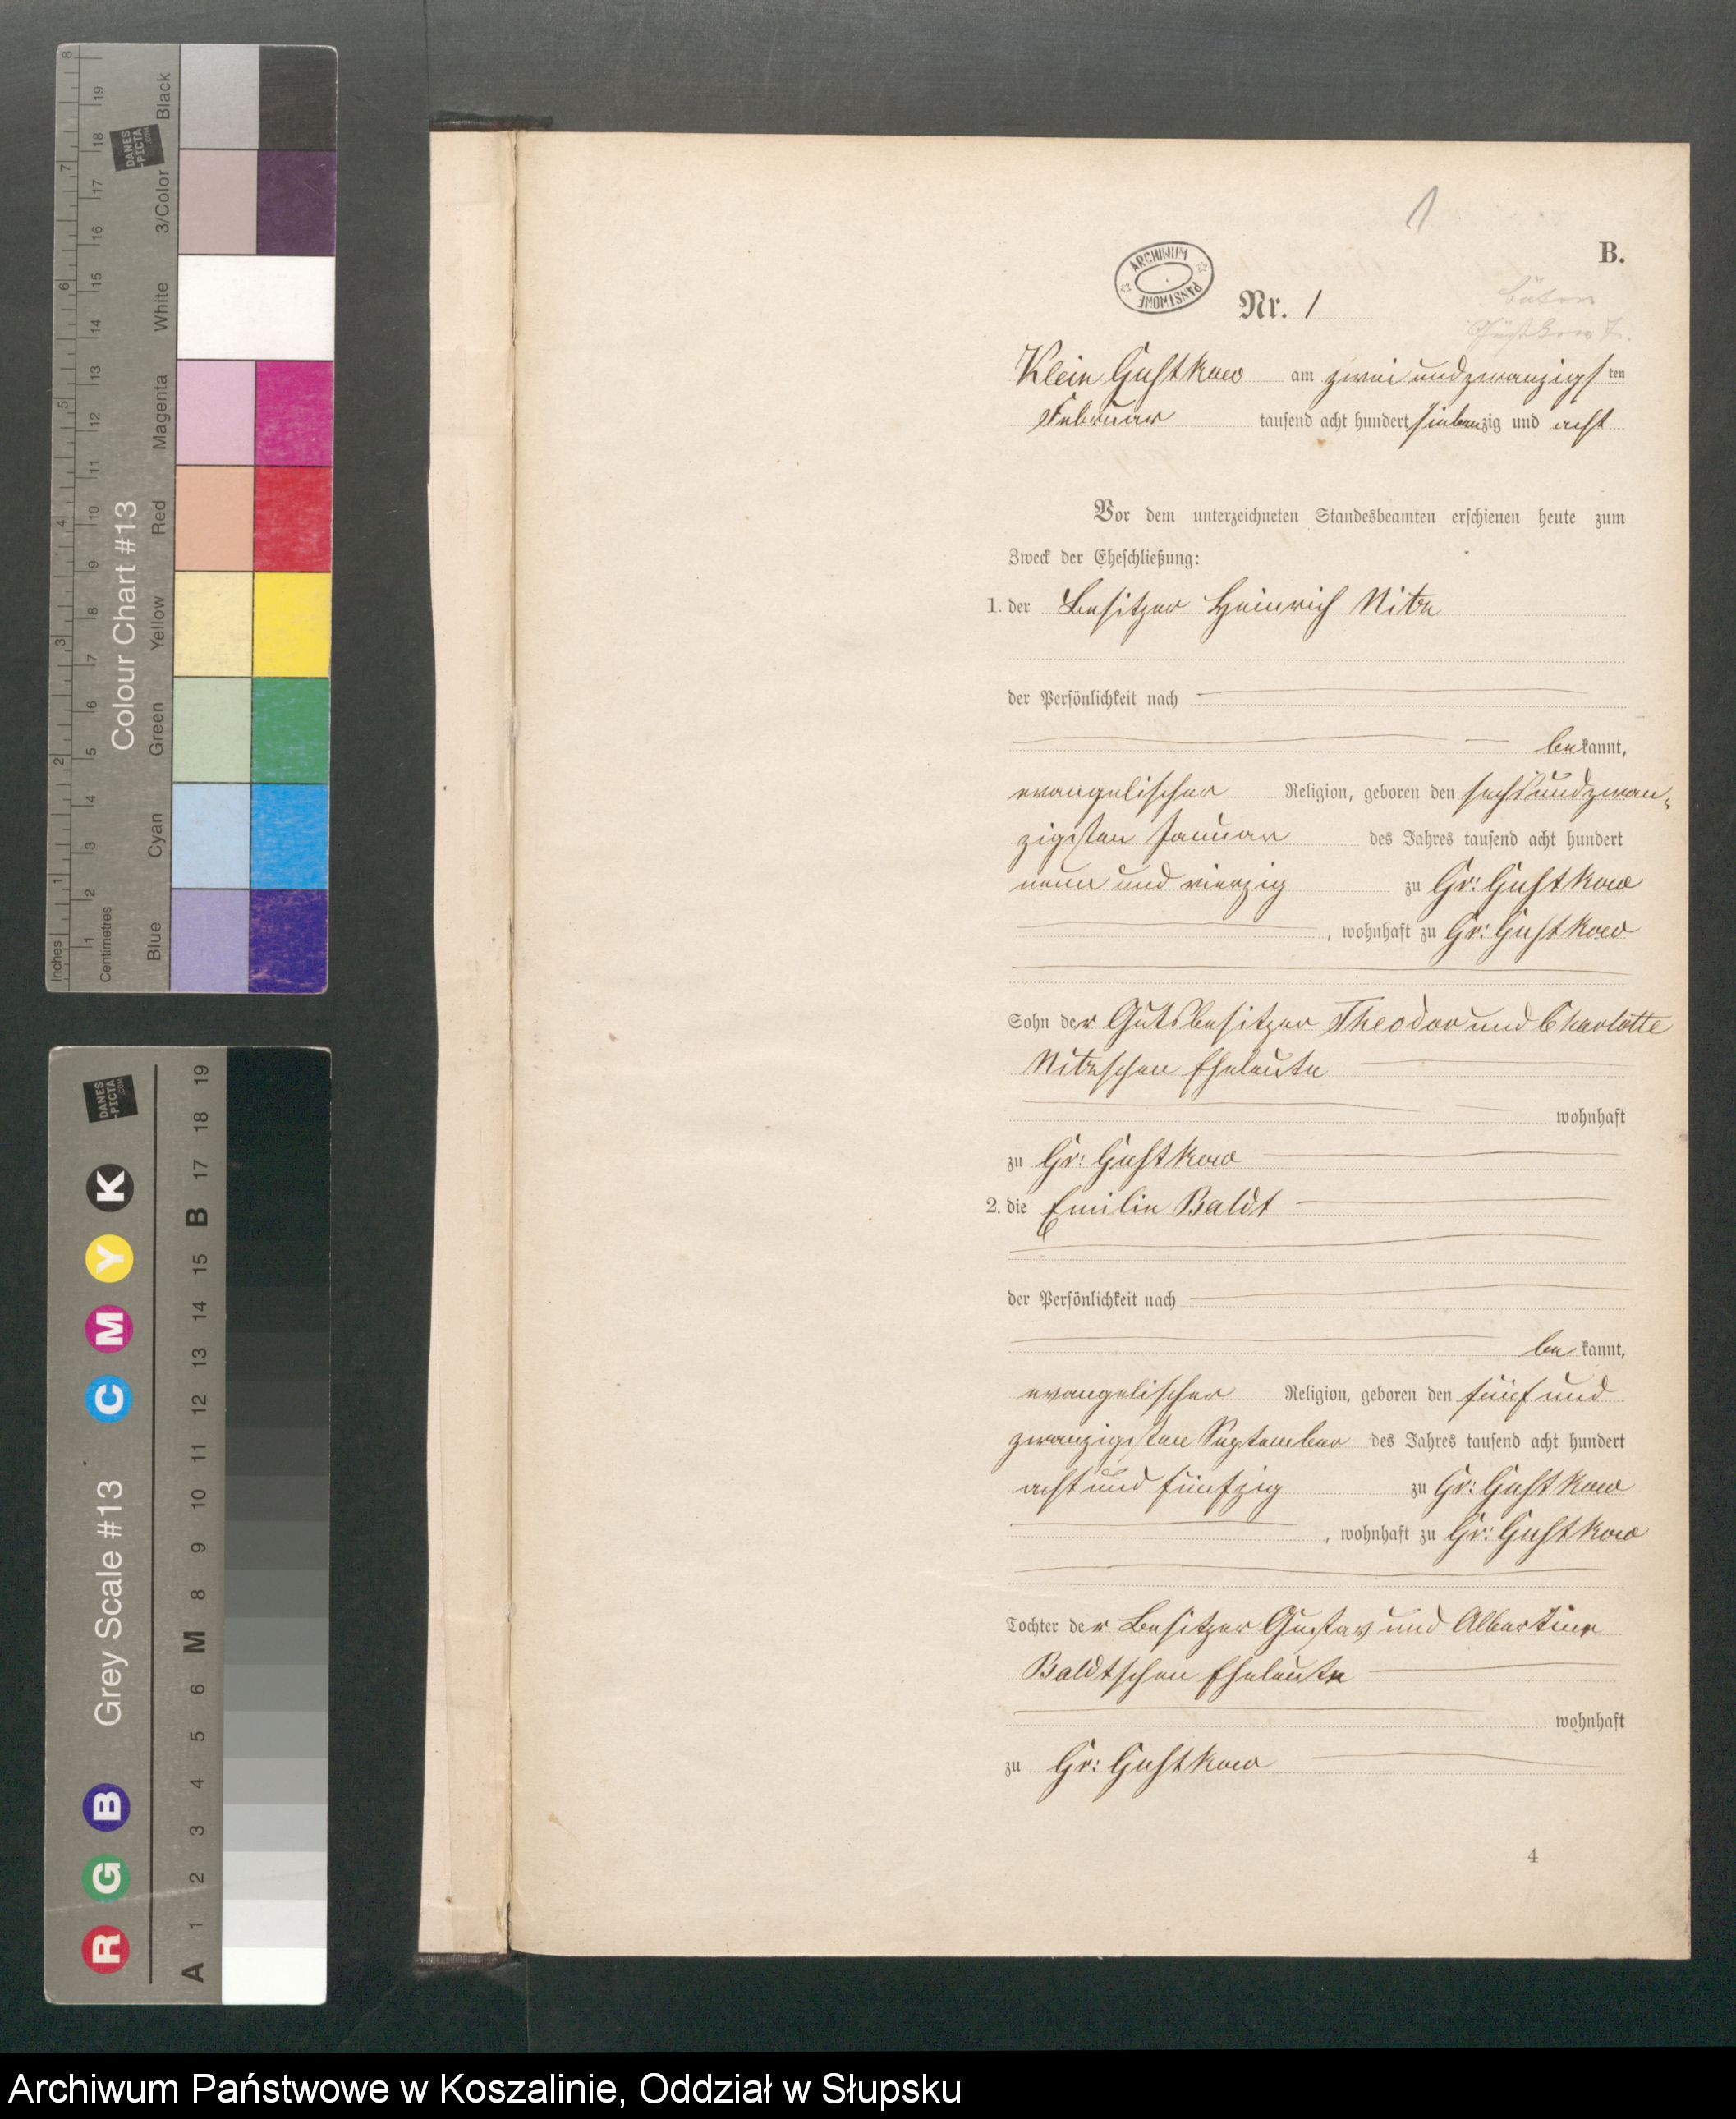 1
B.
ARCHIWUM PAŃSTWOWE
Nr. 1
Büton
Klein Gustkow am zwei und zwanzigsten
Februar tausend acht hundert siebenzig und acht
Vor dem unterzeichneten Standesbeamten erschienen heute zum
Zweck der Eheschließung:
1. der Besitzer Heinrich Nitze
der Persönlichkeit nach
bekannt,
evangelischer Religion, geboren den sechs und zwan-
zigsten Januar des Jahres tausend acht hundert
neun und vierzig zu Gr: Gustkow
, wohnhaft zu Gr: Gustkow
Sohn der Gutsbesitzer Theodor und Charlotte
Nitzeschen Eheleute
wohnhaft
zu Gr: Gustkow
2. die Emilie Baldt
der Persönlichkeit nach
bekannt,
evangelischer Religion, geboren den fünf und
zwanzigsten September des Jahres tausend acht hundert
acht und fünfzig zu Gr: Gustkow
, wohnhaft zu Gr: Gustkow
Tochter der Besitzer Gustav und Albertine
Baldtschen Eheleute
wohnhaft
zu Gr: Gustkow
4
Colour Chart #13
Inches 1 2 3 4 5 6 7 8
Centimetres 1 2 3 4 5 6 7 8 9 10 11 12 13 14 15 16 17 18 19
Blue Cyan Green Yellow Red Magenta White 3/Color Black
DANES-PICTA.COM
Grey Scale #13
R G B C M Y K
A 1 2 3 4 5 6 M 8 9 10 11 12 13 14 15 B 17 18 19
DANES-PICTA.COM
Archiwum Państwowe w Koszalinie, Oddział w Słupsku